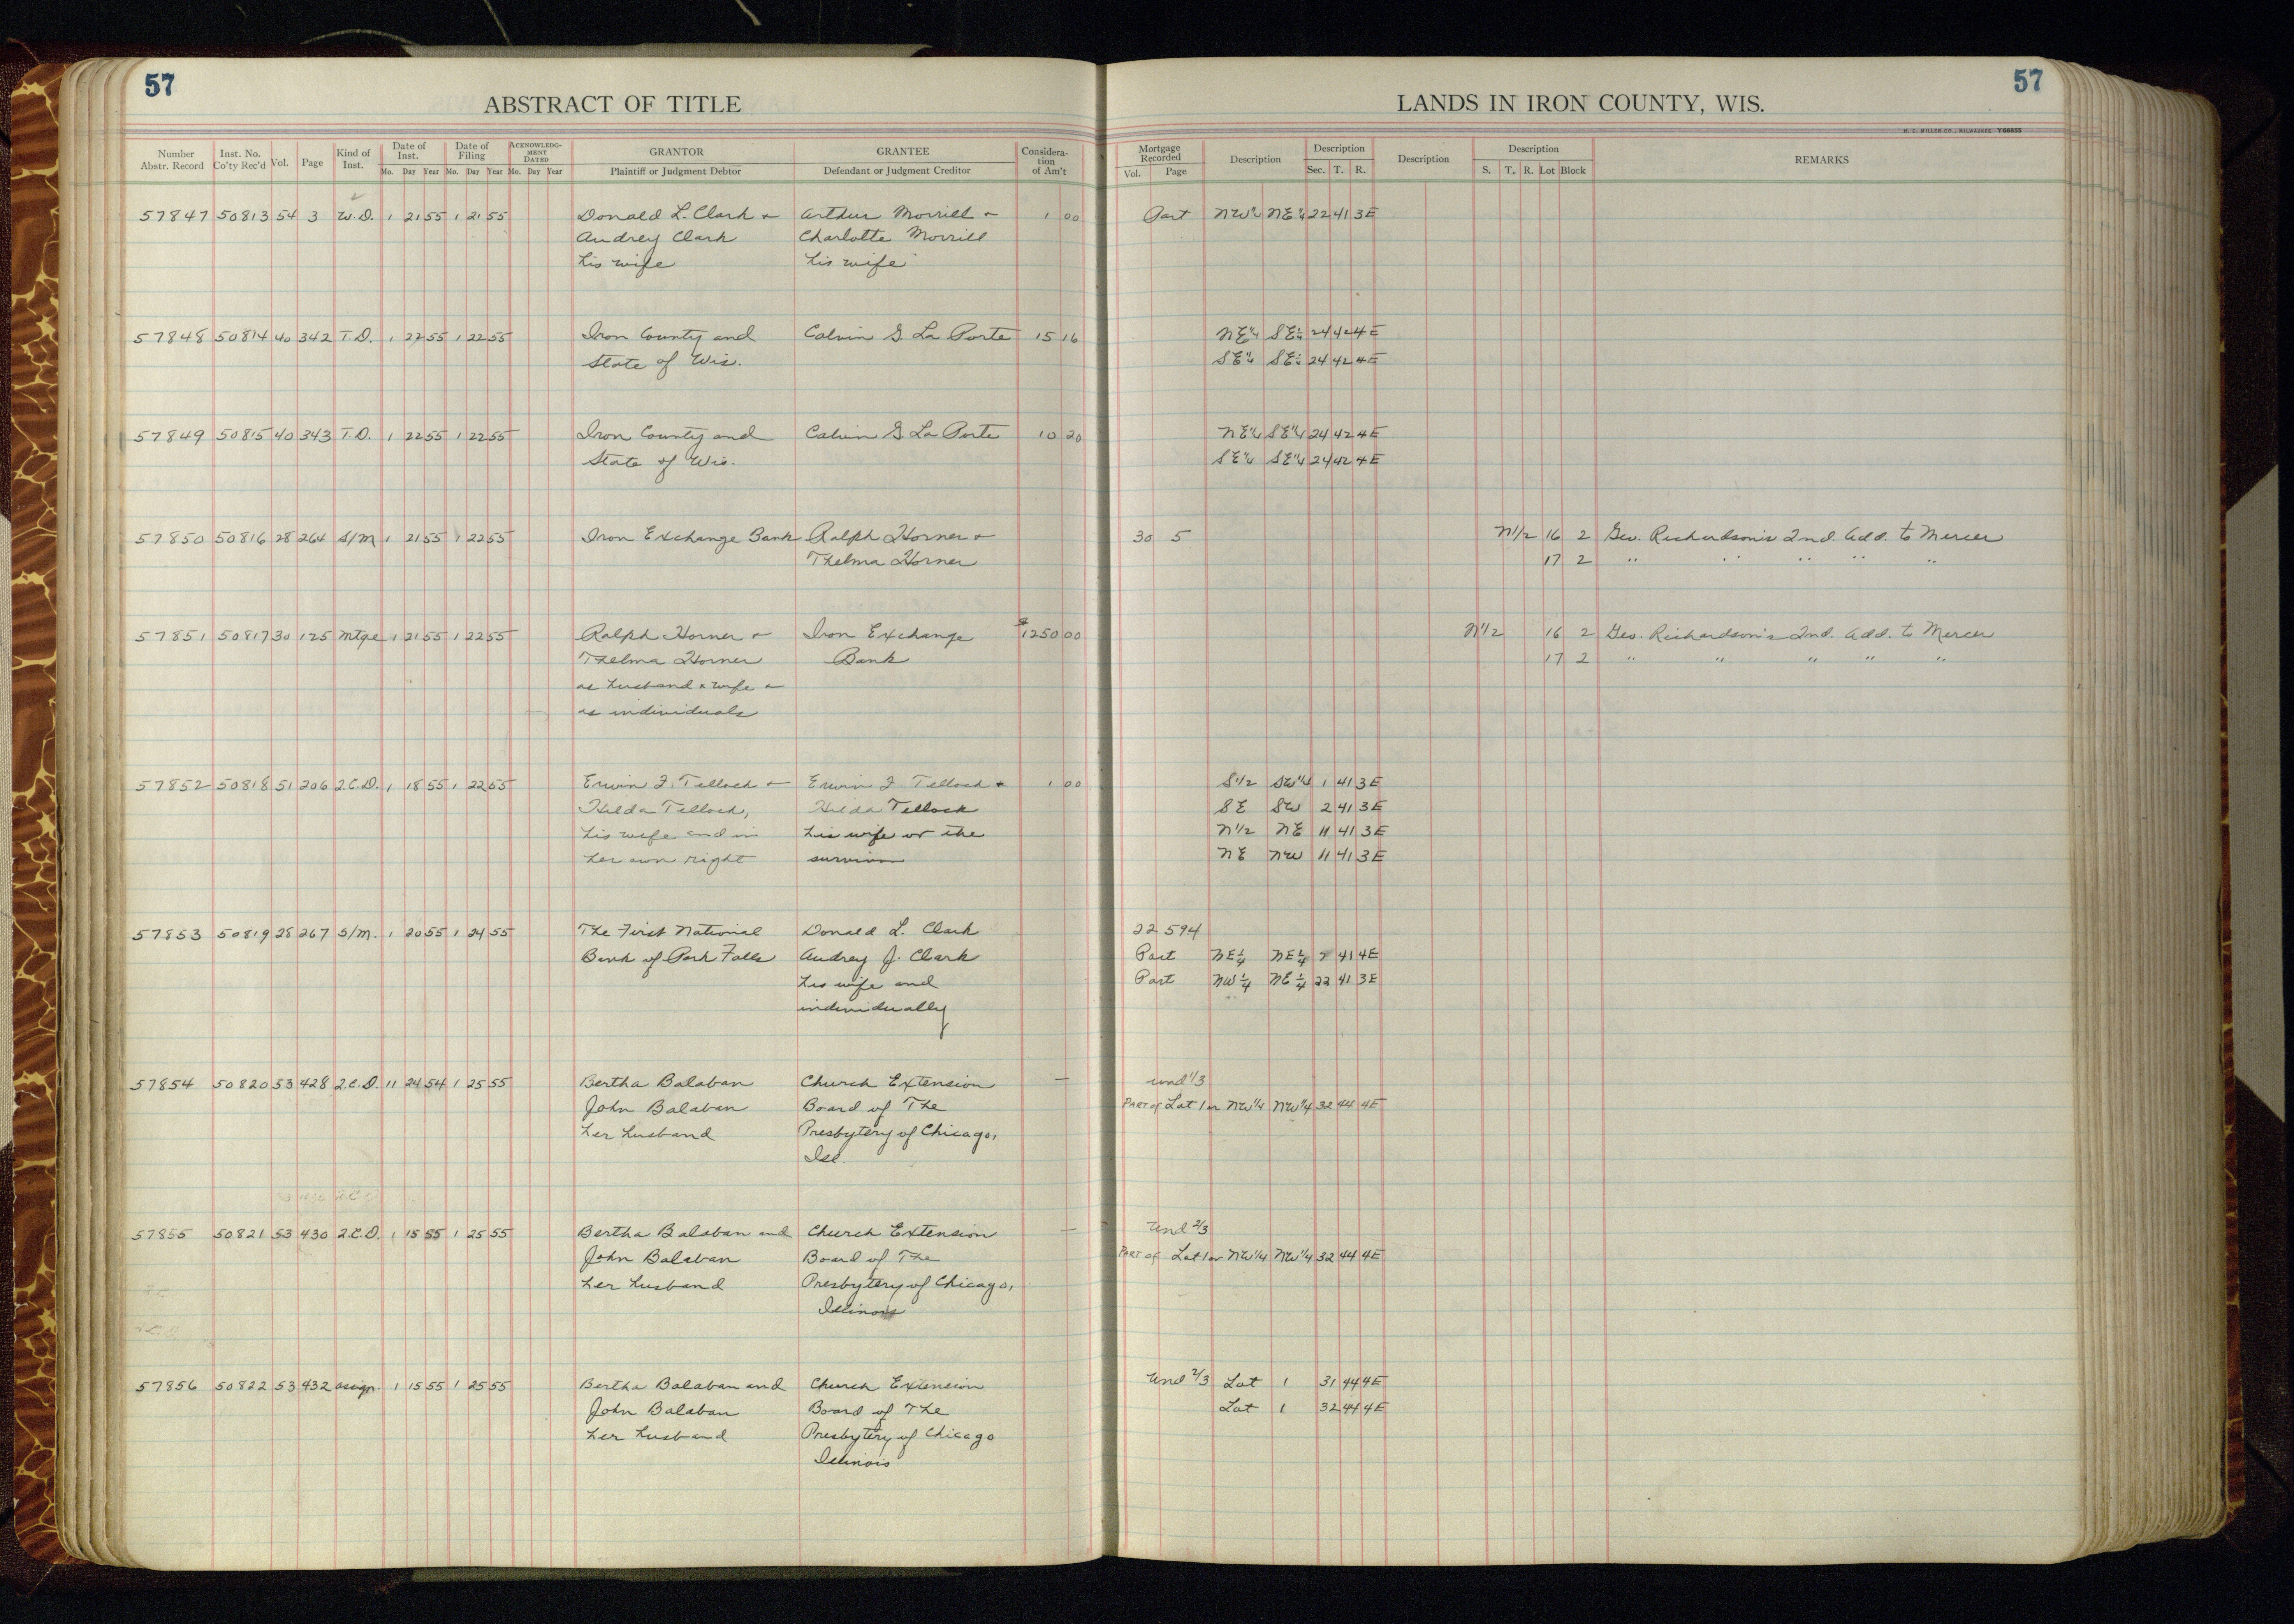 57
ABSTRACT OF TITLE
Number Abstr. Record Inst. No. Co'ty Rec'd Vol. Page Kind of Inst. Date of Inst. Mo. Day Year Date of Filing Mo. Day Year ACKNOWLEDG-MENT DATED Mo. Day Year GRANTOR Plaintiff or Judgment Debtor GRANTEE Defendant or Judgment Creditor Considera-tion of Am't
57847 50813 54 3 W.D. 1 21 55 1 21 55 Donald L. Clark & Arthur Morrill & 1 00
Audrey Clark Charlotte Morrill
his wife his wife
57848 50814 40 342 T.D. 1 22 55 1 22 55 Iron County and Calvin G La Porte 15 16
State of Wis.
57849 50815 40 343 T.D. 1 22 55 1 22 55 Iron County and Calvin G La Porte 10 20
State of Wis.
57850 50816 28 264 S/M 1 21 55 1 22 55 Iron Exchange Bank Ralph Horner &
Thelma Horner
57851 50817 30 125 Mtge 1 21 55 1 22 55 Ralph Horner & Iron Exchange $1250 00
Thelma Horner Bank
as husband & wife &
as individuals
57852 50818 51 206 2.C.D. 1 18 55 1 22 55 Erwin F. Tellock & Erwin F. Tellock & 1 00
Hilda Tellock, Hilda Tellock
his wife and in his wife or the
her own right survivor
57853 50819 28 267 S/M. 1 20 55 1 24 55 The First National Donald L. Clark
Bank of Park Falls Audrey J. Clark
his wife and
individually
57854 50820 53 428 2.C.D. 11 24 54 1 25 55 Bertha Balaban Church Extension —
John Balaban Board of The
her husband Presbytery of Chicago,
Ill.
57855 50821 53 430 2.C.D. 1 15 55 1 25 55 Bertha Balaban and Church Extension —
John Balaban Board of The
her husband Presbytery of Chicago,
Illinois
57856 50822 53 432 assign. 1 15 55 1 25 55 Bertha Balaban and Church Extension
John Balaban Board of The
her husband Presbytery of Chicago
Illinois
57
LANDS IN IRON COUNTY, WIS.
H. C. MILLER CO., MILWAUKEE Y66055
Mortgage Recorded Vol. Page Description Description Sec. T. R. Description Description S. T. R. Lot Block REMARKS
Part NW¼ NE¼ 22 41 3E
NE¼ SE¼ 24 42 4E
SE¼ SE¼ 24 42 4E
NE¼ SE¼ 24 42 4E
SE¼ SE¼ 24 42 4E
30 5 N1/2 16 2 Geo. Richardson's 2nd. Add. to Mercer
17 2 " " " " "
N1/2 16 2 Geo. Richardson's 2nd. Add. to Mercer
17 2 " " " " "
S1/2 SW1/4 1 41 3E
SE SW 2 41 3E
N1/2 NE 11 41 3E
NE NW 11 41 3E
22 594
Part NE¼ NE¼ 41 4E
Part NW¼ NE¼ 22 41 3E
und 1/3
PART of Lot 1 or NW1/4 NW1/4 32 44 4E
Und 2/3
PART of Lot 1 or NW1/4 NW1/4 32 44 4E
Und 2/3 Lot 1 31 44 4E
Lot 1 32 44 4E